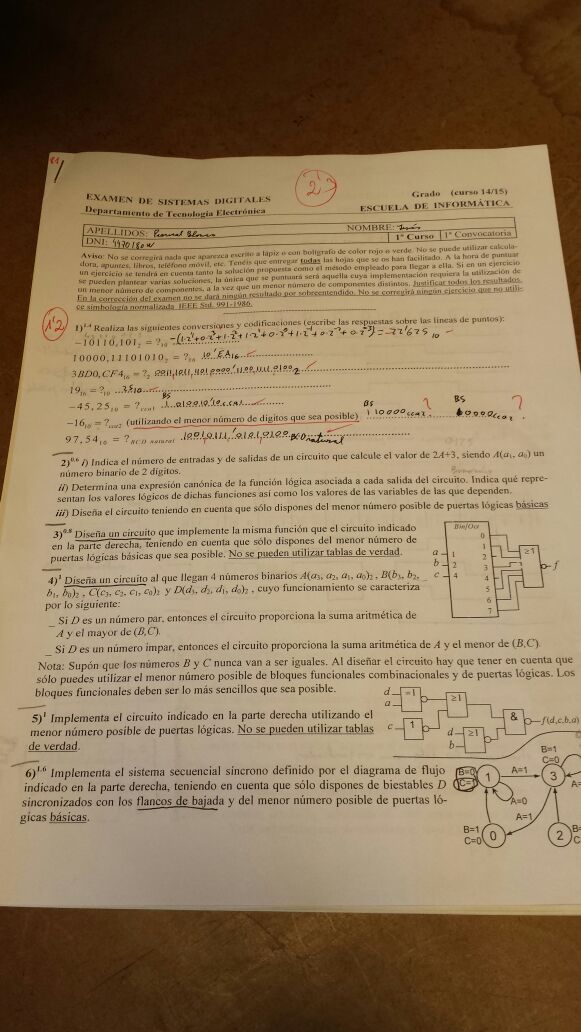 2'3
EXAMEN DE SISTEMAS DIGITALES
Grado (curso 14/15)
Departamento de Tecnología Electrónica
ESCUELA DE INFORMÁTICA
APELLIDOS:
NOMBRE: Jesús
DNI:
1º Curso
1ª Convocatoria
Aviso: No se corregirá nada que aparezca escrito a lápiz o con bolígrafo de color rojo o verde. No se puede utilizar calcula-
dora, apuntes, libros, teléfono móvil, etc. Tenéis que entregar todas las hojas que se os han facilitado. A la hora de puntuar
un ejercicio se tendrá en cuenta tanto la solución propuesta como el método empleado para llegar a ella. Si en un ejercicio
se pueden plantear varias soluciones, la única que se puntuará será aquella cuya implementación requiera la utilización de
un menor número de componentes, a la vez que un menor número de componentes distintos. Justificar todos los resultados.
En la corrección del examen no se dará ningún resultado por sobreentendido. No se corregirá ningún ejercicio que no utili-
ce simbología normalizada IEEE Std. 991-1986.
1'2
1)1.4 Realiza las siguientes conversiones y codificaciones (escribe las respuestas sobre las líneas de puntos):
-10110,101₂ = ?₁₀ = 22'625₁₀
10000,11101010₂ = ?₁₆ 10'EA₁₆
3BD0,CF4₁₆ = ?₂ 0011,1011,1101,0000'1100,1111,0100₂
19₁₆ = ?₁₀ 25₁₀
-45,25₁₀ = ?cca1 BS
-16₁₀ = ?cca2 (utilizando el menor número de dígitos que sea posible) BS 110000cca2 ? BS 10000cca2 ?
97,54₁₀ = ?BCD natural 1001,0111'0101,0100 BCD natural
2)0.6 i) Indica el número de entradas y de salidas de un circuito que calcule el valor de 2A+3, siendo A(a₁, a₀) un
número binario de 2 dígitos.
ii) Determina una expresión canónica de la función lógica asociada a cada salida del circuito. Indica qué repre-
sentan los valores lógicos de dichas funciones así como los valores de las variables de las que dependen.
iii) Diseña el circuito teniendo en cuenta que sólo dispones del menor número posible de puertas lógicas básicas
3)0.8 Diseña un circuito que implemente la misma función que el circuito indicado
en la parte derecha, teniendo en cuenta que sólo dispones del menor número de
puertas lógicas básicas que sea posible. No se pueden utilizar tablas de verdad.
Bin/Oct
a 1
b 2
c 4
0
1
2
3
4
5
6
7
≥1
f
4)1 Diseña un circuito al que llegan 4 números binarios A(a₃, a₂, a₁, a₀)₂ , B(b₃, b₂,
b₁, b₀)₂ , C(c₃, c₂, c₁, c₀)₂ y D(d₃, d₂, d₁, d₀)₂ , cuyo funcionamiento se caracteriza
por lo siguiente:
_ Si D es un número par, entonces el circuito proporciona la suma aritmética de
A y el mayor de (B,C).
_ Si D es un número impar, entonces el circuito proporciona la suma aritmética de A y el menor de (B,C).
Nota: Supón que los números B y C nunca van a ser iguales. Al diseñar el circuito hay que tener en cuenta que
sólo puedes utilizar el menor número posible de bloques funcionales combinacionales y de puertas lógicas. Los
bloques funcionales deben ser lo más sencillos que sea posible.
5)1 Implementa el circuito indicado en la parte derecha utilizando el
menor número posible de puertas lógicas. No se pueden utilizar tablas
de verdad.
d
a
=1
≥1
c
1
d
b
≥1
&
f(d,c,b,a)
6)1.6 Implementa el sistema secuencial síncrono definido por el diagrama de flujo
indicado en la parte derecha, teniendo en cuenta que sólo dispones de biestables D
sincronizados con los flancos de bajada y del menor número posible de puertas ló-
gicas básicas.
B=0
C=1
1
A=1
B=1
C=0
3
A=0
A=1
B=1
C=0
0
2